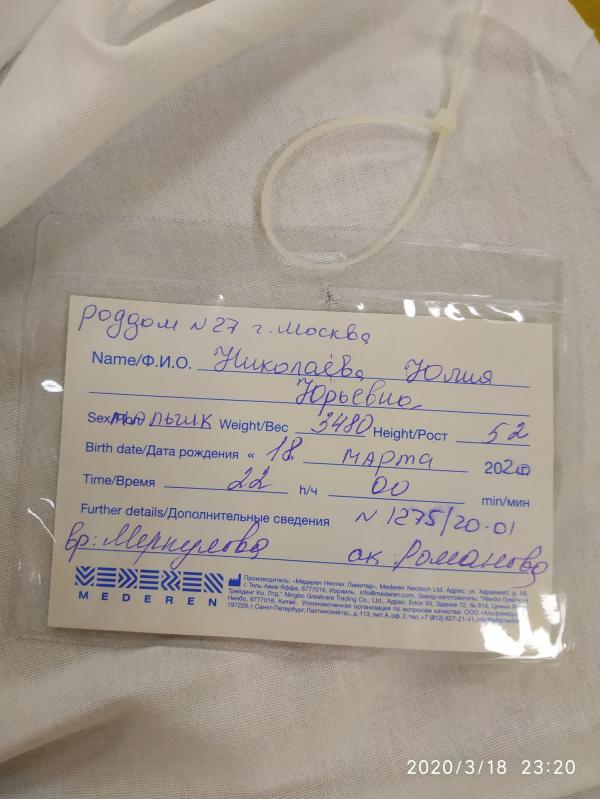 роддом N27 г. Москва
Name/Ф.И.О. Николаева Юлия
Юрьевна
Sex/Пол мальчик Weight/Вес 3480 Height/Рост 52
Birth date/Дата рождения « 18 марта 2020
Time/Время 22 h/ч 00 min/мин
Further details/Дополнительные сведения N 1275/20-01
вр: Меркулова ак. Романова
MEDEREN
Производитель: «Медерен Неотех Лимитед», Mederen Neotech Ltd. Адрес: ул. Харакевет, д. 58,
г. Тель-Авив-Яффа, 6777016, Израиль, info@mederen.com. Завод-изготовитель: "Нинбо Грейткэа
Трейдинг Ко. Лтд." Ningbo Greatcare Trading Co., Ltd., Адрес: Блок 93, Здание 12, № 818,
Нинбо, 6777016, Китай. Уполномоченная организация по вопросам качества: ООО
197229, г. Санкт-Петербург, Лахтинский пр., д. 113, лит. А, оф. 2, тел. +7 (812) 627-21-41,
2020/3/18 23:20